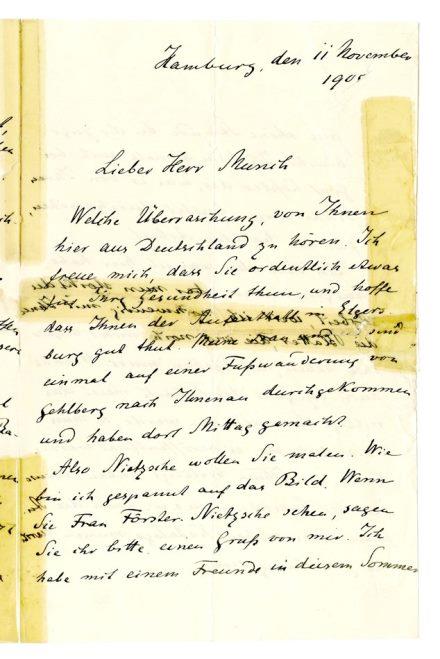 Hamburg, den 11 November
1905
Lieber Herr Munch
Welche Überraschung, von Ihnen
hier aus Deutschland zu hören. Ich
freue mich, dass Sie ordentlich etwas
für Ihre Gesundheit thun, und hoffe
dass Ihnen der Aufenthalt in Elgers
burg gut thut. Wir sind
einmal auf einer Fußwanderung von
Gehlberg nach Ilmenau durchgekommen
und haben dort Mittag gemacht.
Also Nietzsche wollen Sie malen. Wie
bin ich gespannt auf das Bild. Wenn
Sie Frau Förster-Nietzsche sehen, sagen
Sie ihr bitte einen Gruß von mir. Ich
habe mit einem Freunde in diesem Sommer